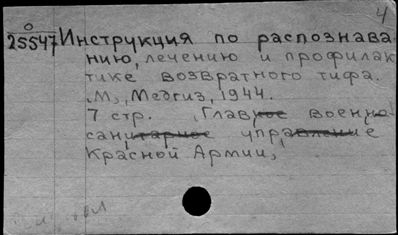 4
О
25547 Инструкция по распознава
нию, лечению и профилак
тике возвратного тифа.
М, Медгиз, 1944.
7 стр. Главное военно
санитарное управление
Красной Армии,